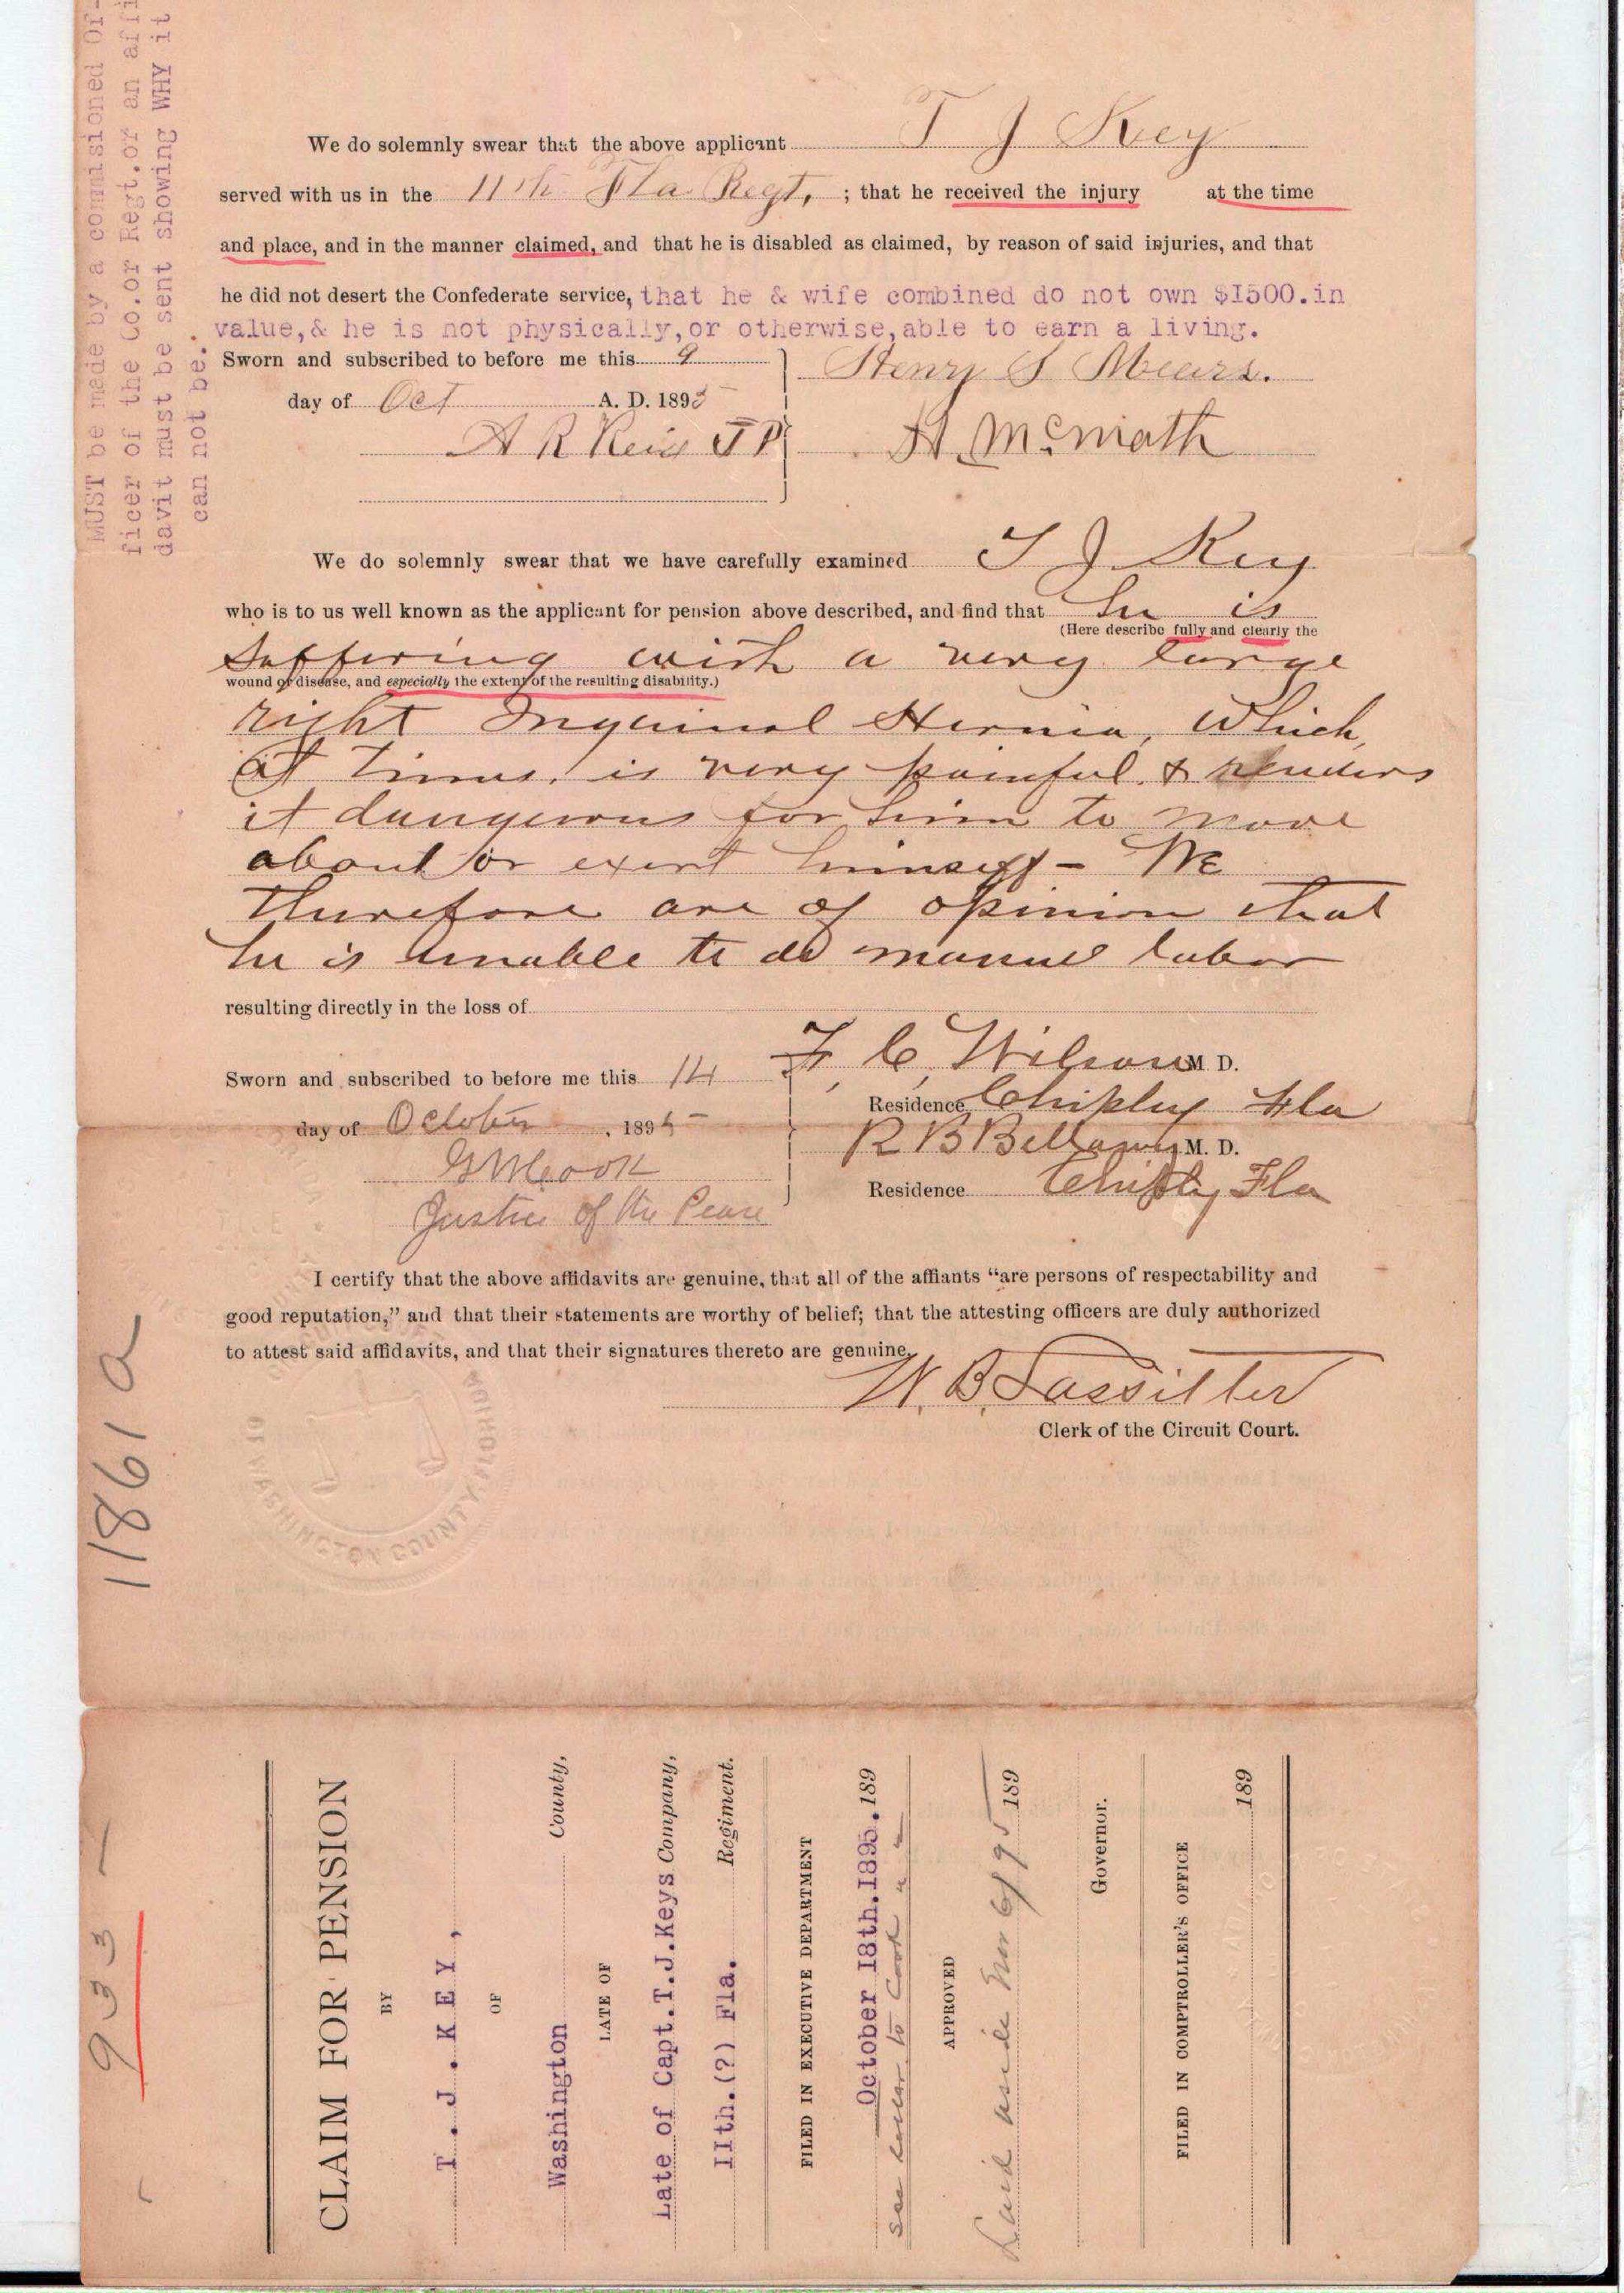 MUST be made by a commisioned Of-
ficer of the Co.or Regt.or an affi
davit must be sent showing WHY it
can not be.
We do solemnly swear that the above applicant T J Key
served with us in the 11th Fla Regt, ; that he received the injury at the time
and place, and in the manner claimed, and that he is disabled as claimed, by reason of said injuries, and that
he did not desert the Confederate service, that he & wife combined do not own $I500.in
value,& he is not physically,or otherwise,able to earn a living.
Sworn and subscribed to before me this 9
day of Oct A. D. 1895
Henry S Mears.
A R J P
H. McMath
We do solemnly swear that we have carefully examined T J Key
who is to us well known as the applicant for pension above described, and find that he is
(Here describe fully and clearly the
suffering with a very large
wound or disease, and especially the extent of the resulting disability.)
right Inguinal Hernia, which,
at times, is very painful & renders
it dangerous for him to move
about or exert himself - We
therefore are of opinion that
he is unable to do manuel labor
resulting directly in the loss of
Sworn and subscribed to before me this 14
day of October , 1895
G M Cook
Justice of the Peace
F. C. Wilson M. D.
Residence Chipley Fla
R B Bellamy M. D.
Residence Chipley Fla
I certify that the above affidavits are genuine, that all of the affiants “are persons of respectability and
good reputation,” and that their statements are worthy of belief; that the attesting officers are duly authorized
to attest said affidavits, and that their signatures thereto are genuine.
W. B. Lassitter
Clerk of the Circuit Court.
WASHINGTON COUNTY FLORIDA
11861 a
933
CLAIM FOR PENSION
BY
T . J . K E Y ,
OF
Washington County,
LATE OF
Late of Capt.T.J.Keys Company,
IIth.(?) Fla. Regiment.
FILED IN EXECUTIVE DEPARTMENT
October I8th.I895. 189
see letter to Cook " "
APPROVED
Laid aside Nov 6/95 189
Governor.
FILED IN COMPTROLLER'S OFFICE
189